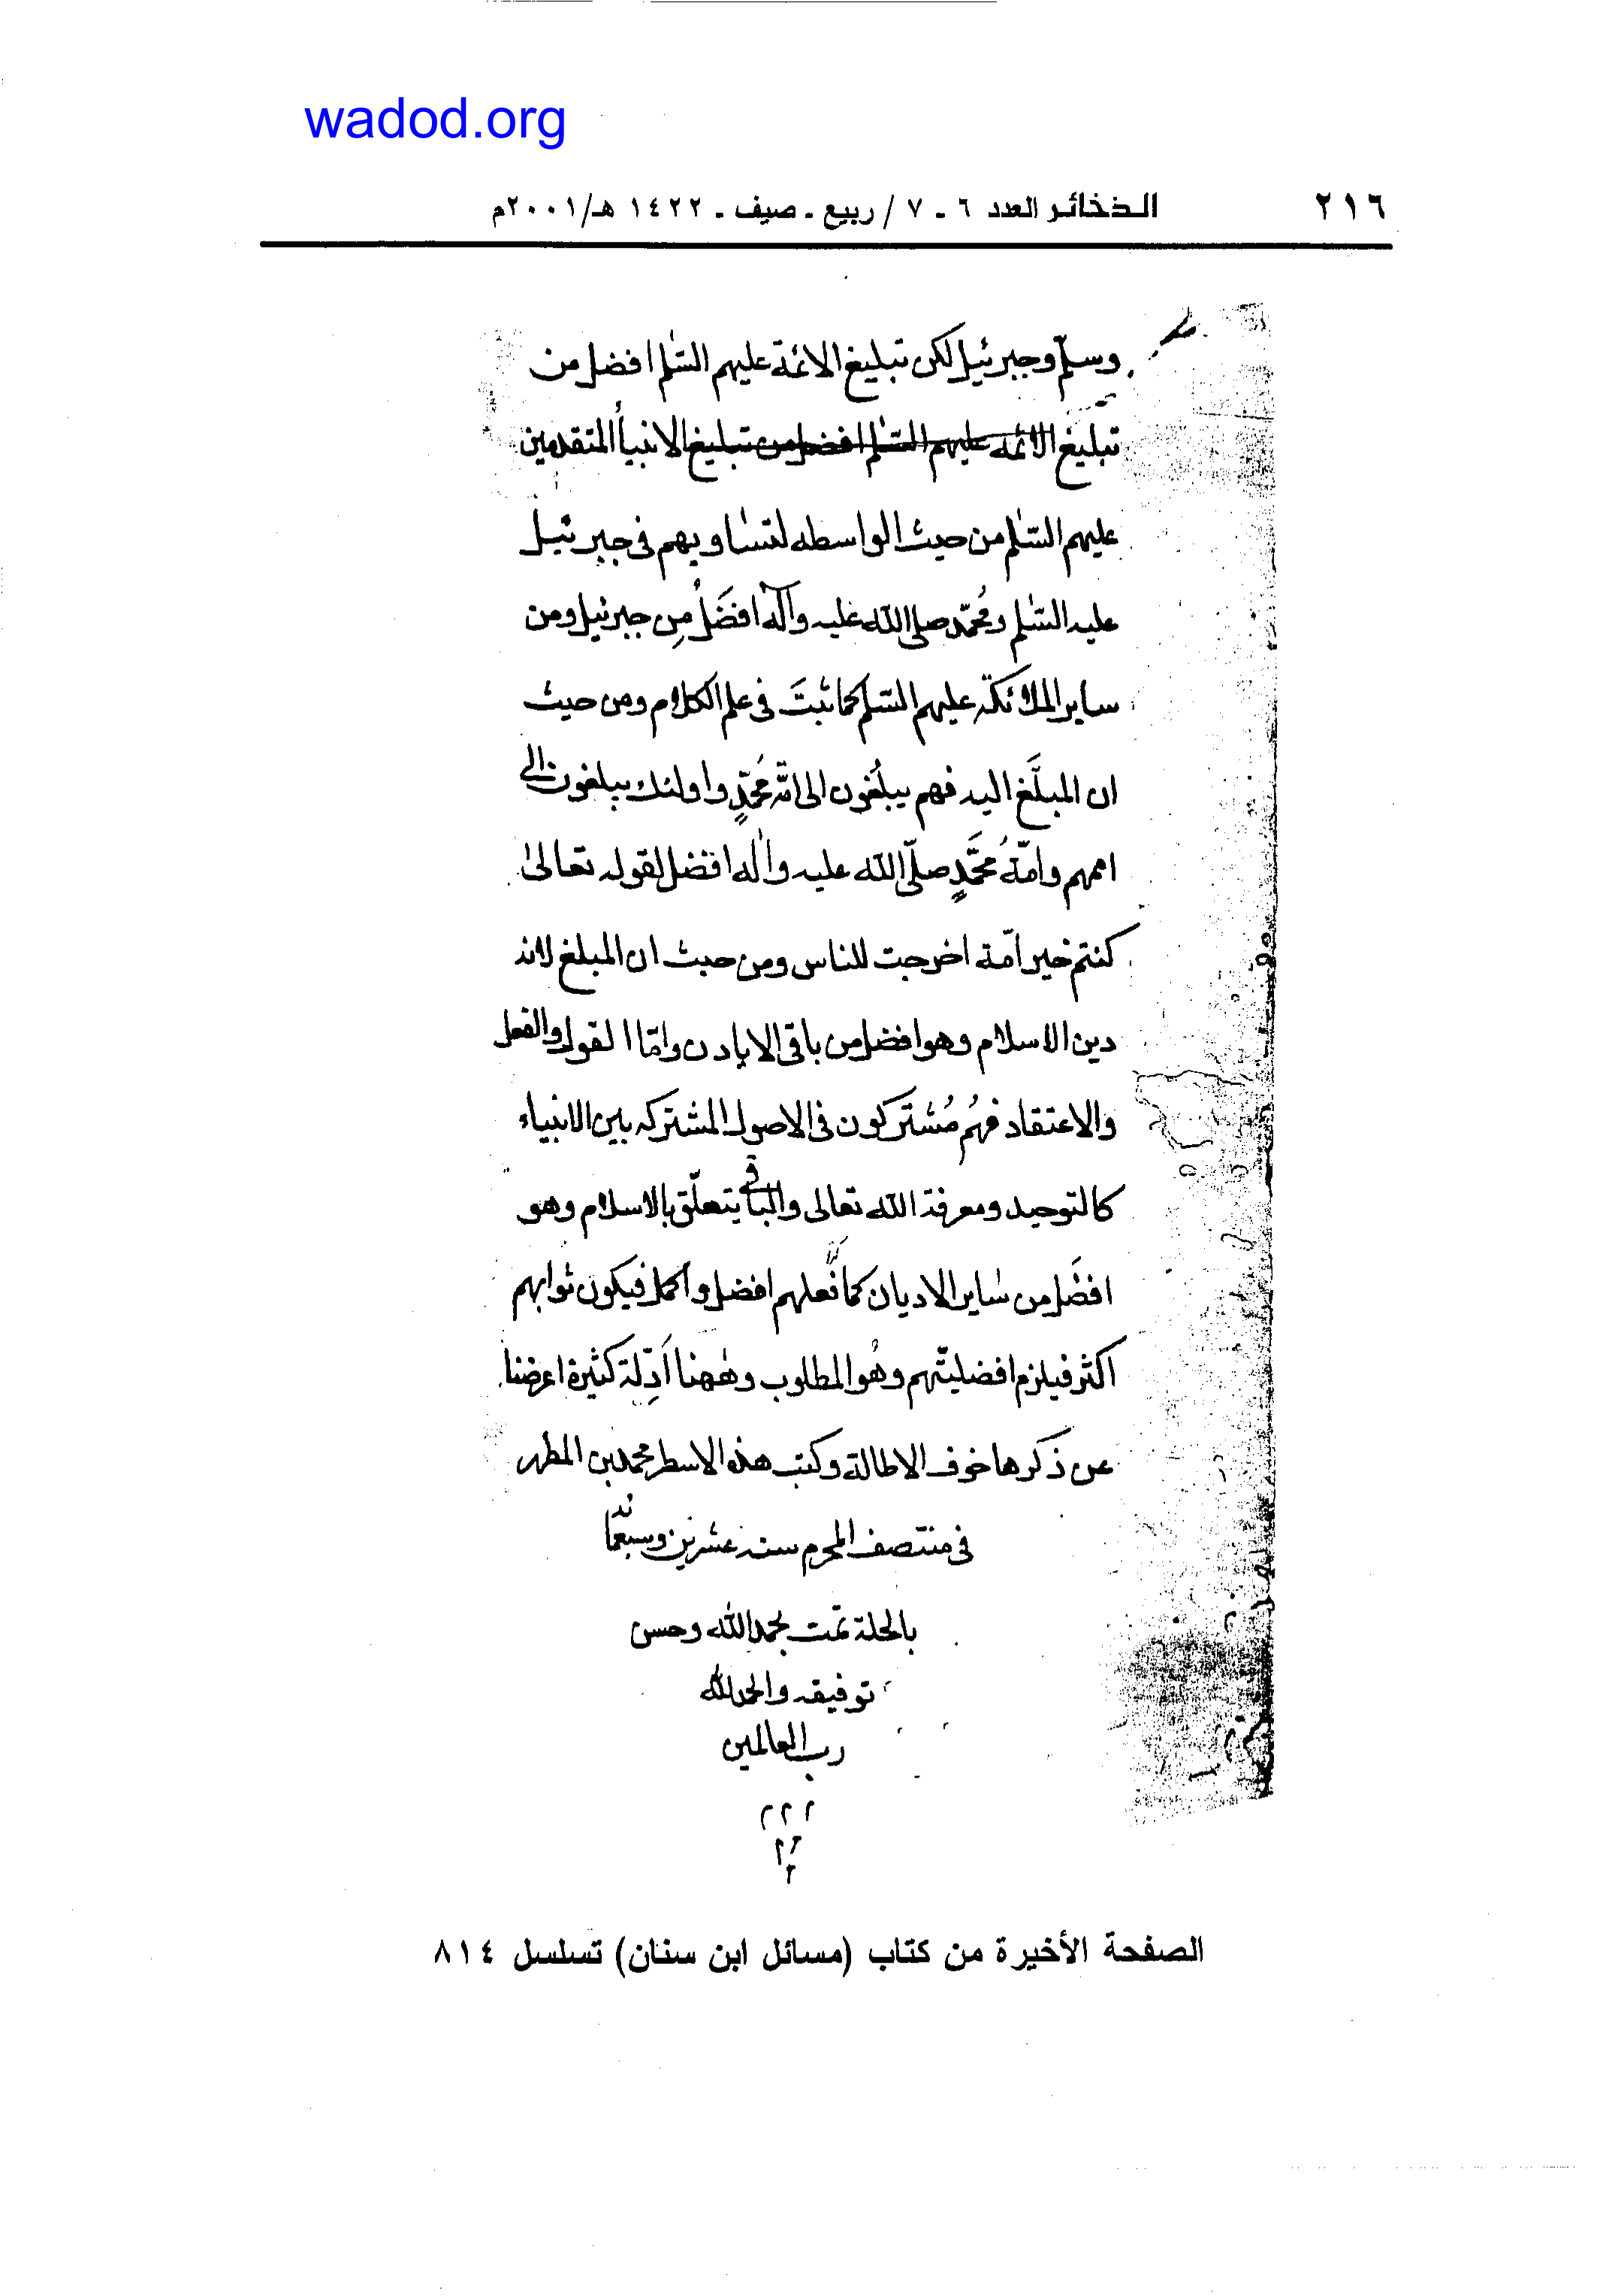 wadod.org
٢١٦ الذخائر العدد ٦ - ٧ / ربيع - صيف - ١٤٢٢ هـ/٢٠٠١م
وسلم وجبرئيل لكن تبليغ الائمة عليهم السلم افضل من
تبليغ الائمه عليهم السلم افضل من تبليغ الانبيأ المتقدمين
عليهم السلم من حيث الواسطه لتساويهم في جبرئيل
عليه السلم ومحمد صلى الله عليه وآله افضل من جبرئيل ومن
ساير الملائكة عليهم السلم كما ثبت في علم الكلام ومن حيث
ان المبلغ اليه فهم يبلغون الى امة محمد واولئك يبلغون الى
اممهم وامة محمد صلى الله عليه واله افضل لقوله تعالى
كنتم خير امة اخرجت للناس ومن حيث ان المبلغ لانه
دين الاسلام وهو افضل من باقي الايادن واما القول والفعل
والاعتقاد فهم مشتركون في الاصول المشتركه بين الانبياء
كالتوحيد ومعرفة الله تعالى والباقي يتعلق بالاسلام وهو
افضل من ساير الاديان كما فعلهم افضل واكمل فيكون ثوابهم
اكثر فيلزم افضليتهم وهو المطلوب وههنا ادلة كثيرة اعرضنا
عن ذكرها خوف الاطالة وكتب هذه الاسطر محمد بن المطهر
في منتصف المحرم سنه عشرين وسبعمائه
بالحلة تمت بحمد الله وحسن
توفيقه والحمد لله
رب العالمين
م م م
م م
م
الصفحة الأخيرة من كتاب (مسائل ابن سنان) تسلسل ٨١٤